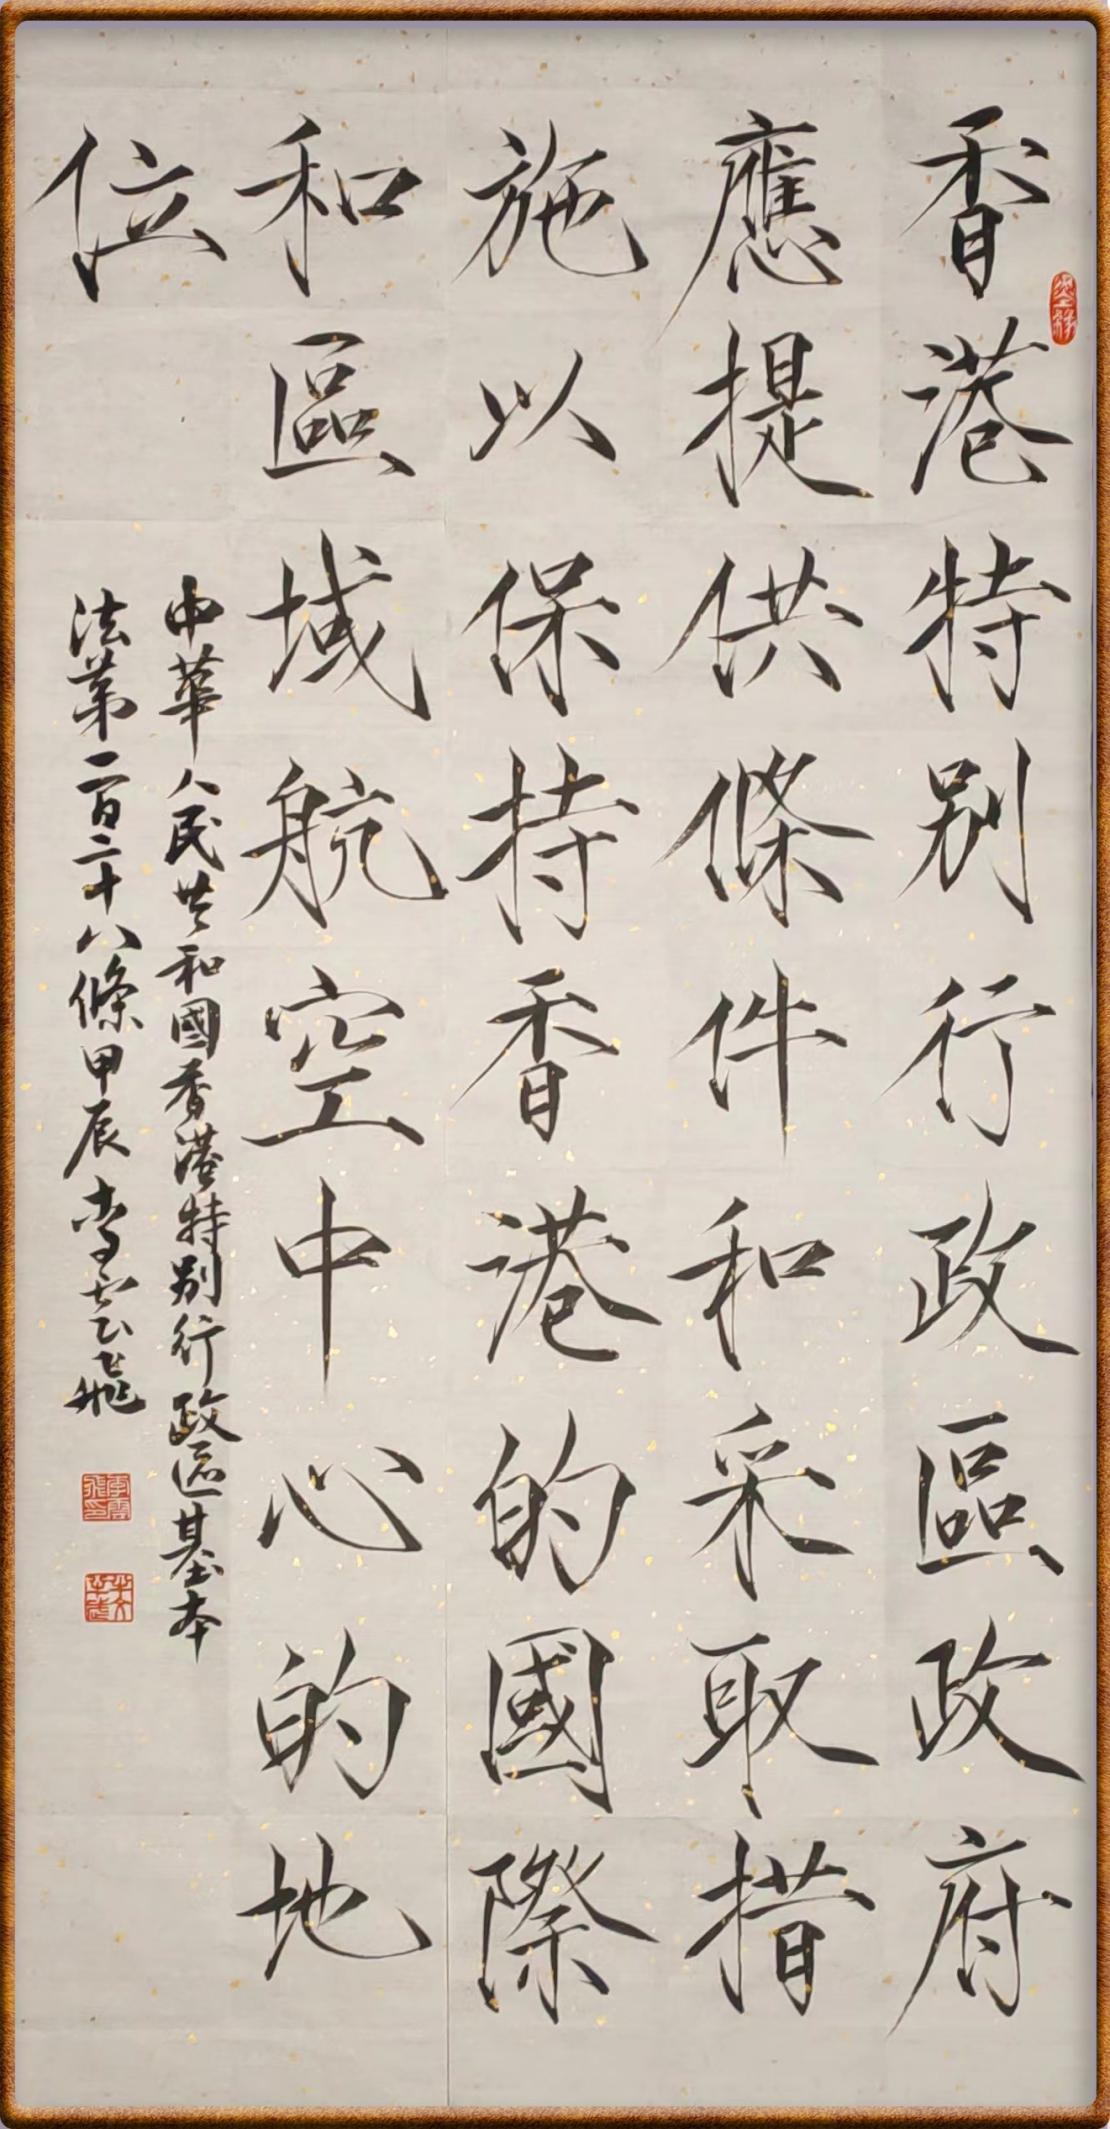 香港特别行政區政府
應提供條件和采取措
施以保持香港的國際
和區域航空中心的地
位
中華人民共和國香港特别行政區基本
法第一百二十八條甲辰李云飛
李雲飛印